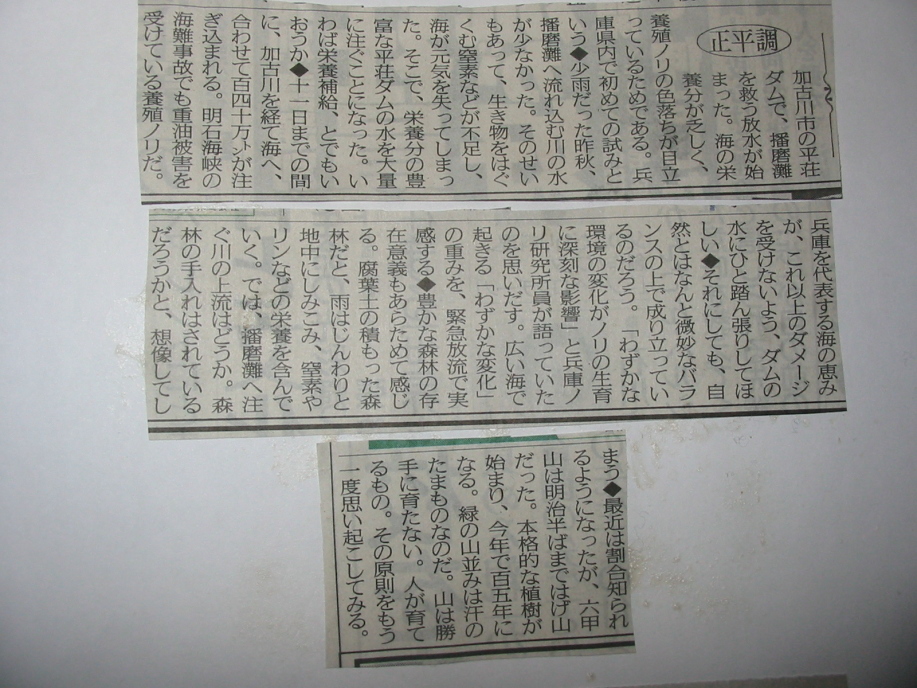 正平調
加古川市の平荘
ダムで、播磨灘
を救う放水が始
まった。海の栄
養分が乏しく、
養殖ノリの色落ちが目立
っているためである。兵
庫県内で初めての試みと
いう◆少雨だった昨秋、
播磨灘へ流れ込む川の水
が少なかった。そのせい
もあって、生き物をはぐ
くむ窒素などが不足し、
海が元気を失ってしまっ
た。そこで、栄養分の豊
富な平荘ダムの水を大量
に注ぐことになった。い
わば栄養補給、とでもい
おうか◆十一日までの間
に、加古川を経て海へ、
合わせて百四十万㌧が注
ぎ込まれる。明石海峡の
海難事故でも重油被害を
受けている養殖ノリだ。
兵庫を代表する海の恵み
が、これ以上のダメージ
を受けないよう、ダムの
水にひと踏ん張りしてほ
しい◆それにしても、自
然とはなんと微妙なバラ
ンスの上で成り立ってい
るのだろう。「わずかな
環境の変化がノリの生育
に深刻な影響」と兵庫ノ
リ研究所員が語っていた
のを思いだす。広い海で
起きる「わずかな変化」
の重みを、緊急放流で実
感する◆豊かな森林の存
在意義もあらためて感じ
る。腐葉土の積もった森
林だと、雨はじんわりと
地中にしみこみ、窒素や
リンなどの栄養を含んで
いく。では、播磨灘へ注
ぐ川の上流はどうか。森
林の手入れはされている
だろうかと、想像してし
まう◆最近は割合知られ
るようになったが、六甲
山は明治半ばまではげ山
だった。本格的な植樹が
始まり、今年で百五年に
なる。緑の山並みは汗の
たまものなのだ。山は勝
手に育たない。人が育て
るもの。その原則をもう
一度思い起こしてみる。